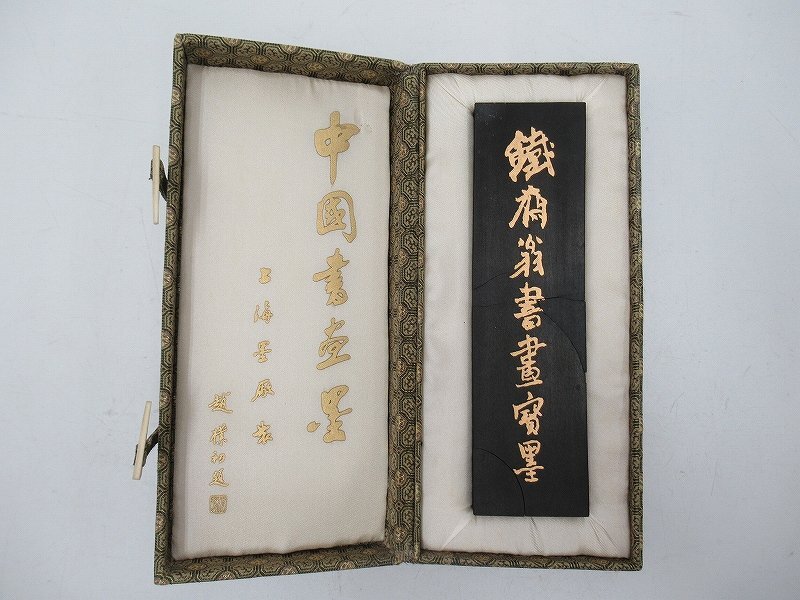 中國書画墨
上海墨厰出
趙樸初題
鐵齋翁書畫寶墨